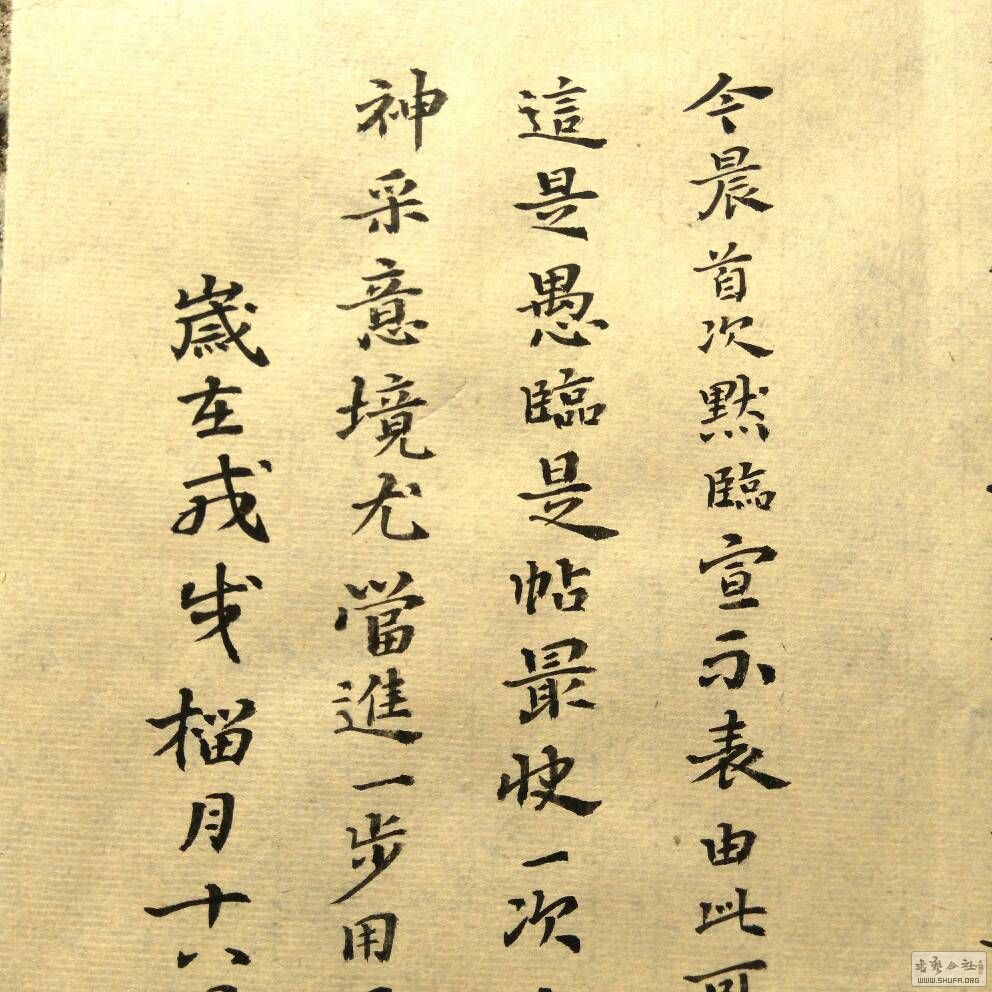 今晨首次默臨宣示表由此可
這是愚臨是帖最快一次
神采意境尤當進一步用
歲在戊戌榴月十八
WWW.SHUFA.ORG